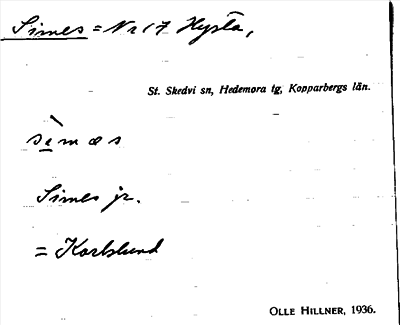 Simes = Nr 17 Hysta,
St. Skedvi sn, Hedemora tg, Kopparbergs län.
sìmæs
Simes jr.
= Karlslund
OLLE HILLNER, 1936.